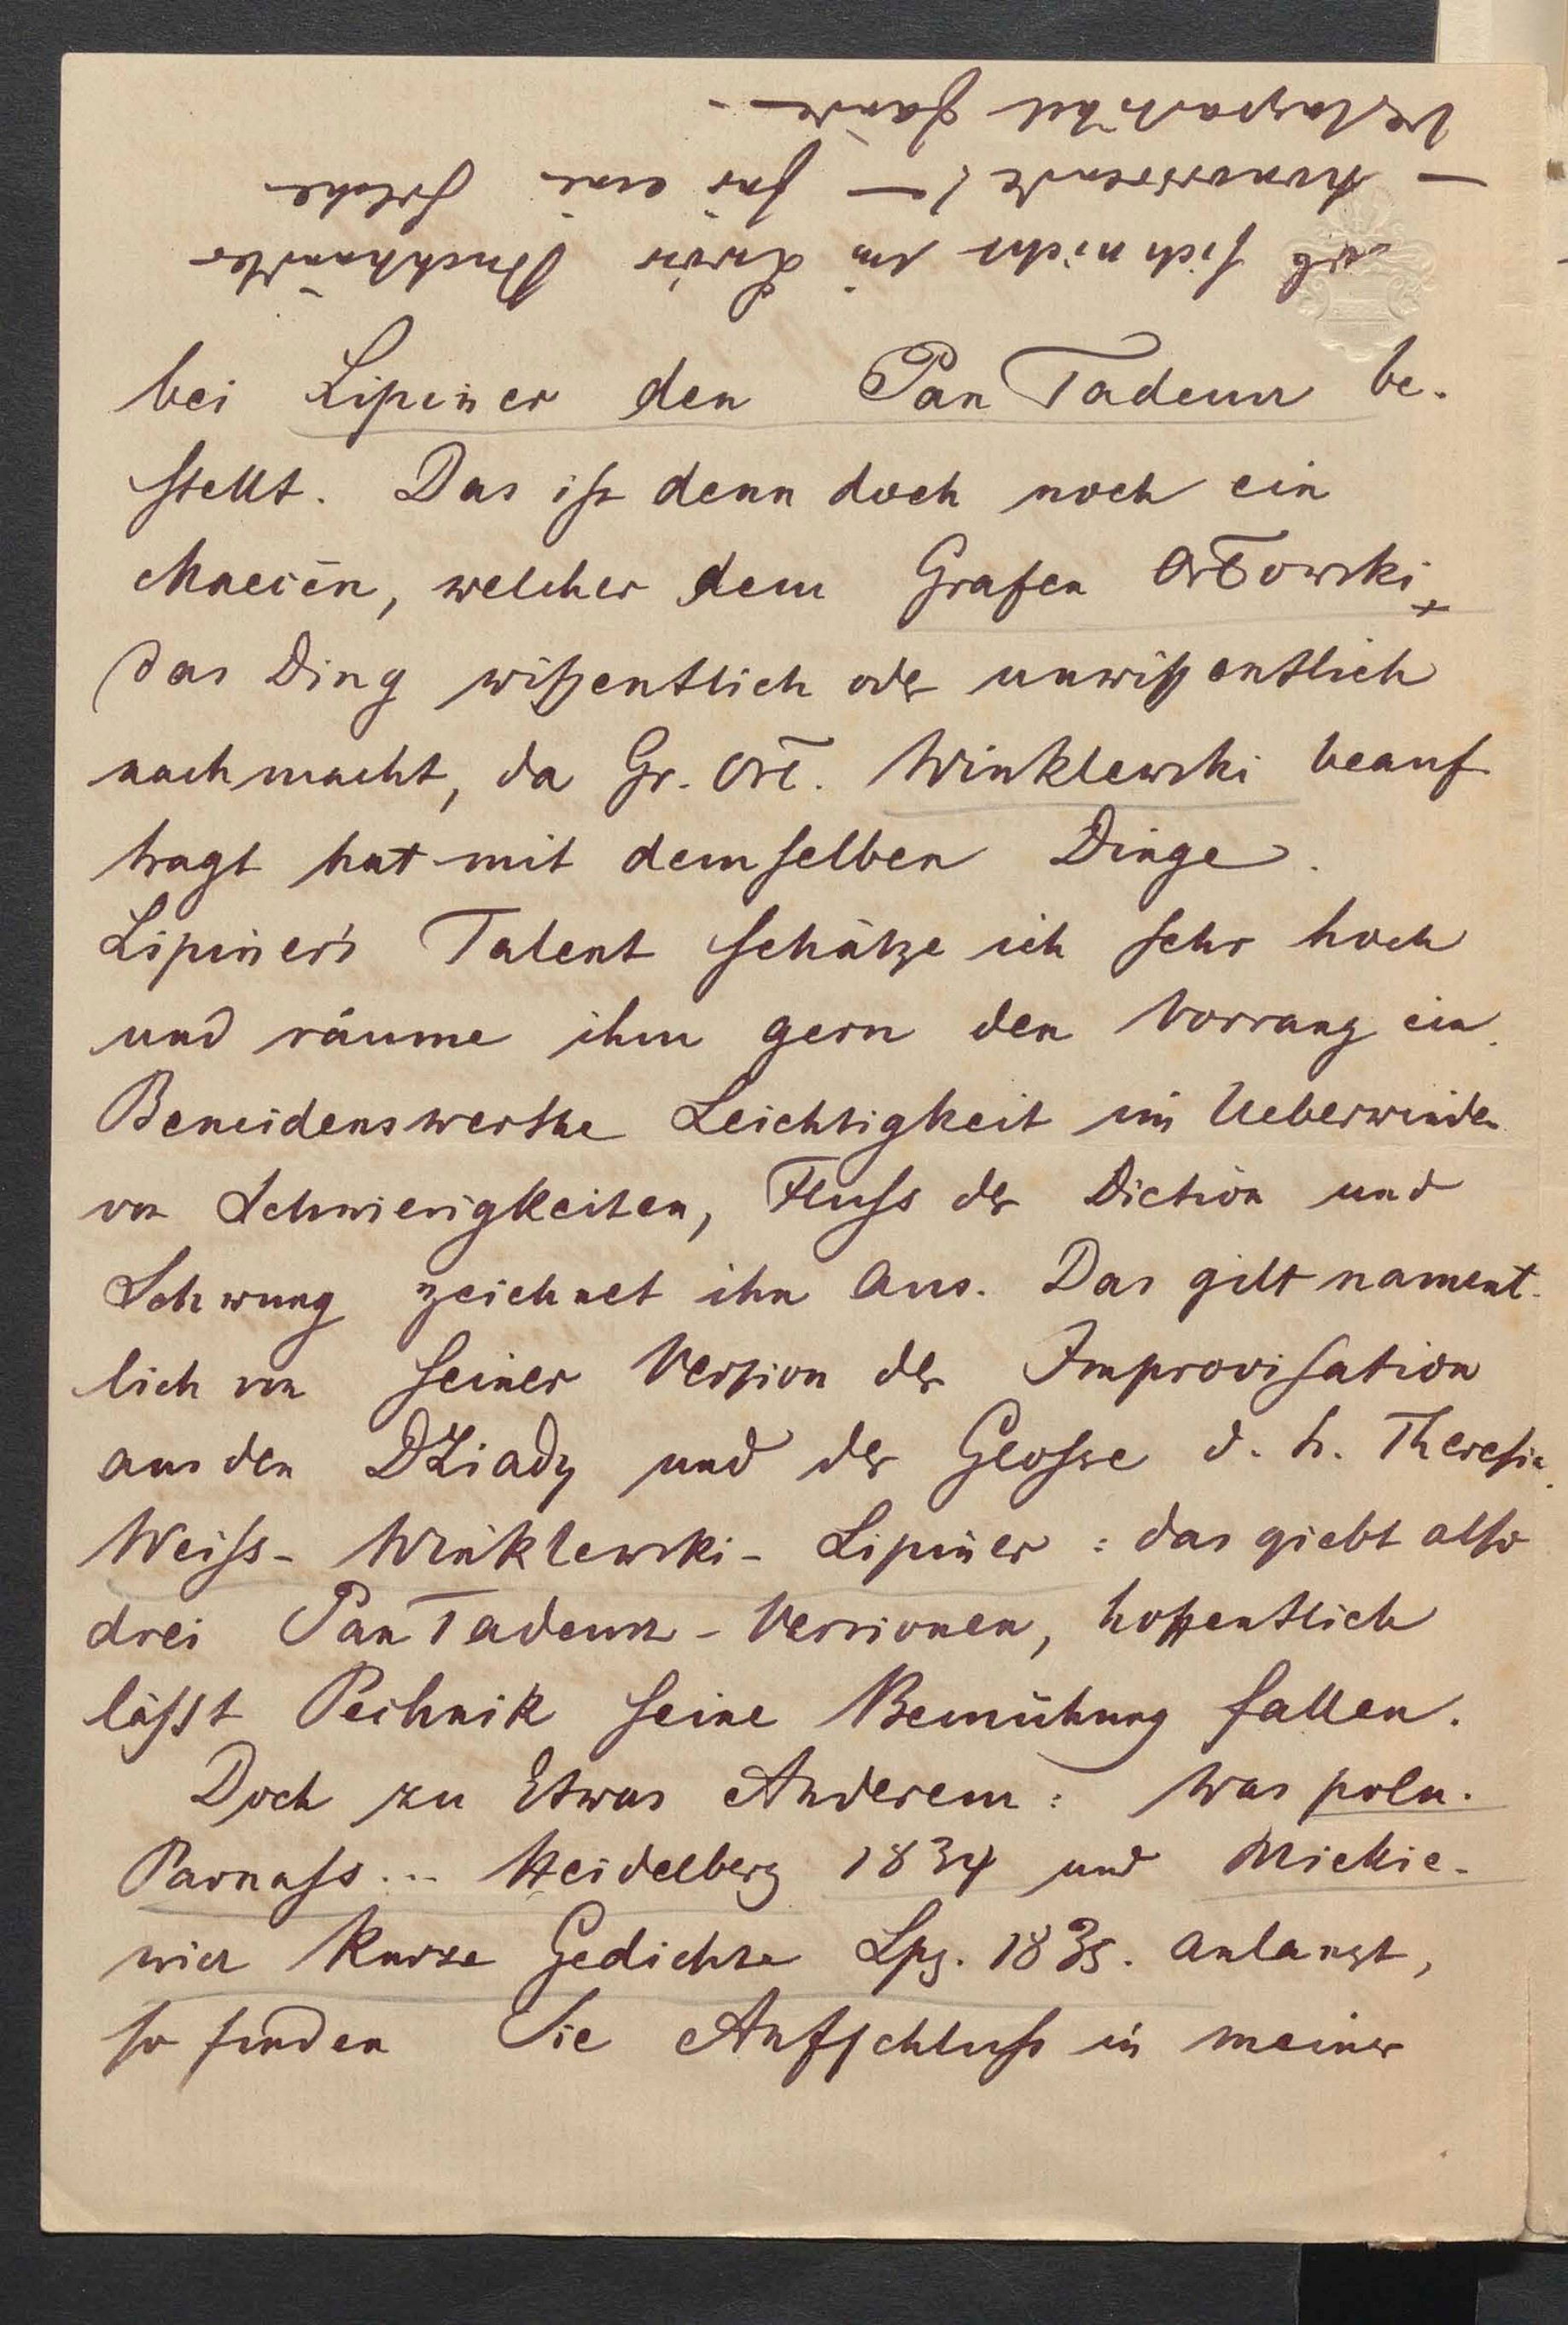 ob sich nicht in Lwów Buchhändler
— honorirende! — für eine solche
Verlagsartikel fände. —
bei Lipiner den Pan Tadeusz be-
stellt. Das ist denn doch noch ein
Maecēn, welcher dem Grafen Orłowski
das Ding wißentlich oder unwißentlich
nachmacht, da Gr. Orł. Winklewski beauf
tragt hat mit demselben Dinge.
Lipiner's Talent schätze ich sehr hoch
und räume ihm gern den Vorrang ein.
Beneidenswerthe Leichtigkeit im Ueberwinden
von Schwierigkeiten, Fluss der Diction und
Schwung zeichnet ihn aus. Das gilt nament-
lich von seiner Version der Improvisation
aus den Dziady und der Glosse d. h. Theresia.
Weiss - Winklewski - Lipiner: das giebt also
drei Pan Tadeusz - Versionen, hoffentlich
lässt Pechnik seine Bemühung fallen.
Doch zu Etwas Anderem: was poln.
Parnass... Heidelberg 1834 und Mickie-
wicz kurze Gedichte Lpz. 1835. anlangt,
so finden Sie Aufschluss in meiner